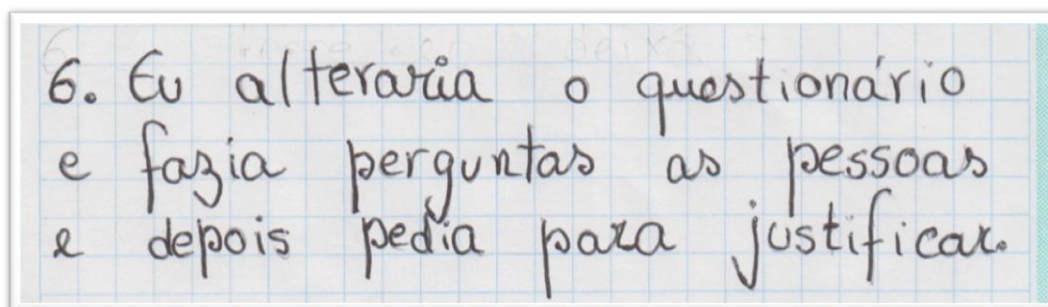 6. Eu alteraria o questionário
e fazia perguntas as pessoas
e depois pedia para justificar.